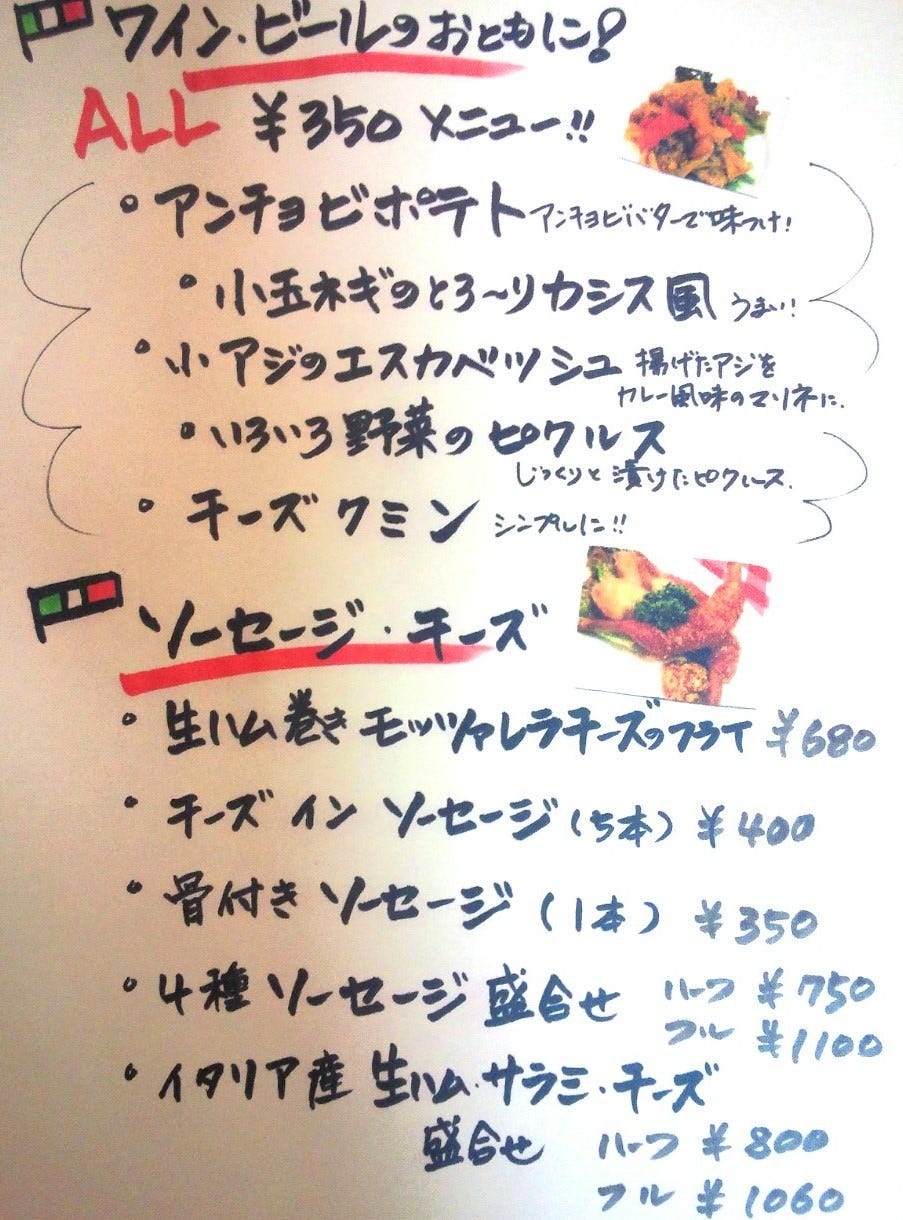 ワイン・ビールのおともに!
ALL ¥350 メニュー!!
・アンチョビポテト アンチョビバターで味つけ!
・小玉ネギのとろ〜りカシス風 うまい!
・小アジのエスカベッシュ 揚げたアジを
カレー風味のマリネに.
・いろいろ野菜のピクルス
じっくりと漬けたピクルース.
・チーズクミン シンプルに!!
ソーセージ・チーズ
・生ハム巻きモッツァレラチーズのフライ ¥680
・チーズインソーセージ(5本) ¥400
・骨付きソーセージ(1本) ¥350
・4種ソーセージ盛合せ ハーフ ¥750
フル ¥1100
・イタリア産 生ハム・サラミ・チーズ
盛合せ ハーフ ¥800
フル ¥1060